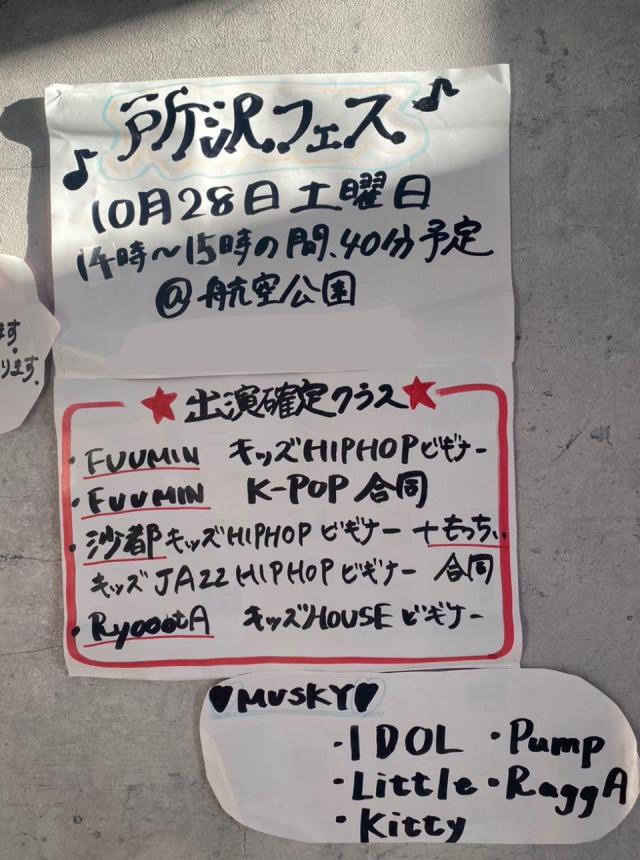 所沢フェス
10月28日土曜日
14時～15時の間、40分予定
@航空公園
ます
ります。
★出演確定クラス★
・FUUMIN キッズHIPHOPビギナー
・FUUMIN K-POP 合同
・沙都 キッズHIPHOP ビギナー +もっちぃ
キッズ JAZZ HIPHOP ビギナー 合同
・RyoootA キッズHOUSE ビギナー
♥MUSKY♥
・IDOL ・Pump
・Little ・RaggA
・Kitty